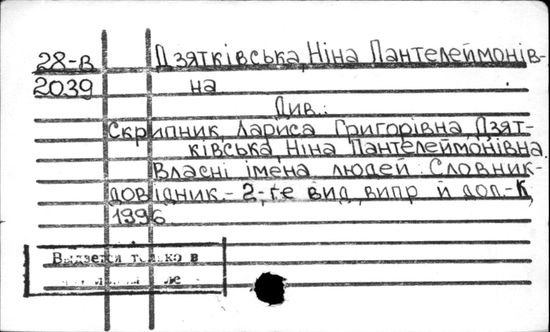 28-В Дзятківська, Ніна Пантелеймонів-
2039 на
Див.:
Скрипник, Лариса Григорівна, Дзят-
ківська, Ніна Пантелеймонівна
Власні імена людей: Словник-
довідник.- 2-ге вид, випр й доп.-К,
1996
Выдается только в